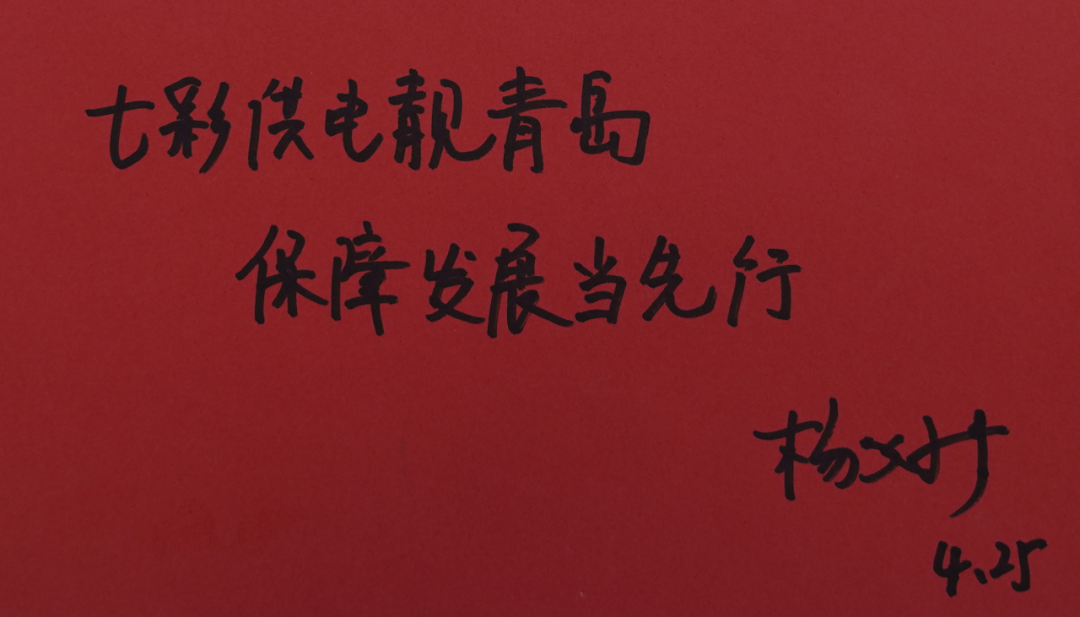 七彩供电靓青岛
保障发展当先行
杨
4.25